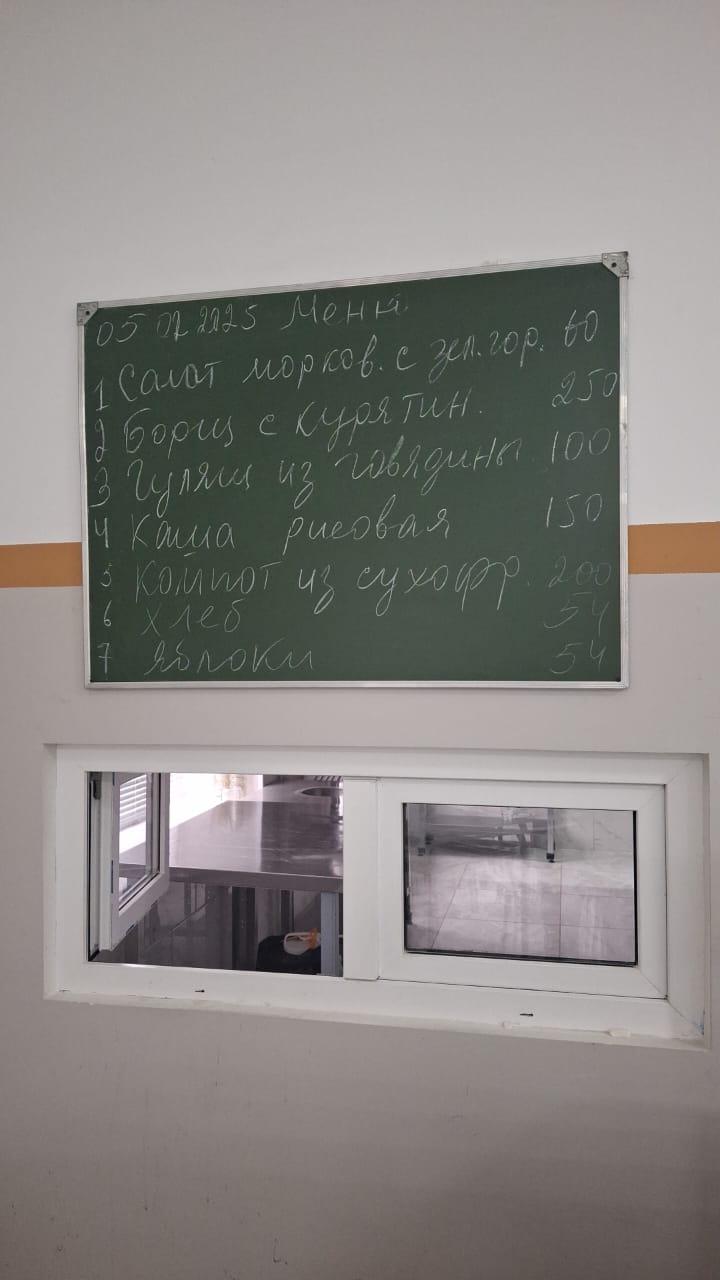 05 07 2025 Меню
1 Салат морков. с зел.гор. 60
2 Борщ с курятин. 250
3 Гуляш из говядины. 100
4 Каша рисовая 150
5 Компот из сухофр. 200
6 хлеб 54
7 яблоки 54